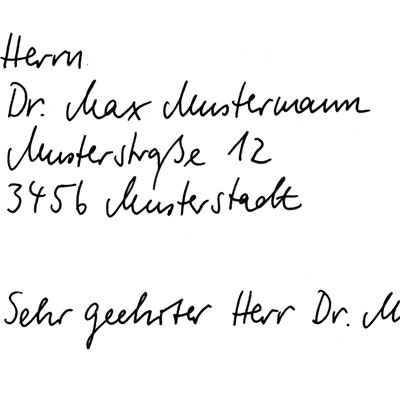 Herrn
Dr. Max Mustermann
Musterstraße 12
3456 Musterstadt
Sehr geehrter Herr Dr. M